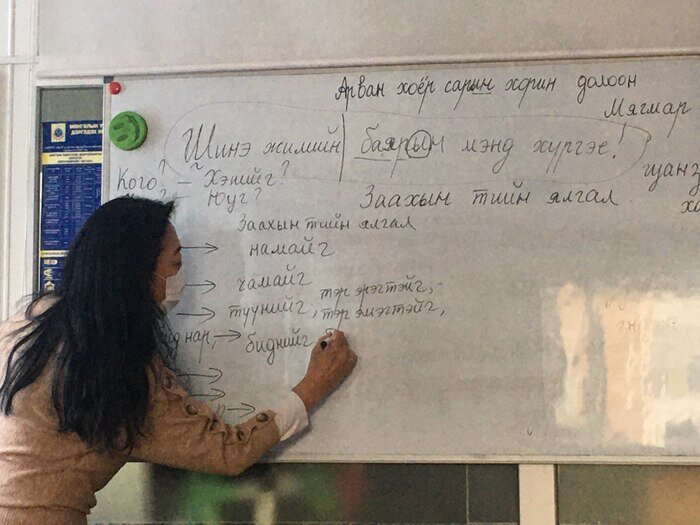 Арван хоёр сарын хорин долоон
Мягмар
Шинэ жилийн баярын мэнд хүргэе!
Кого? – Хэнийг?
– Юуг?
Заахын тийн ялгал.
Заахын тийн ялгал
→ намайг
→ чамайг
→ түүнийг, тэр эрэгтэйг,
тэр эмэгтэйг,
нар, → биднийг
→
→
→